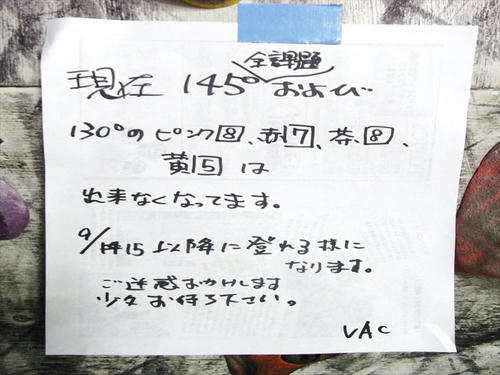 全課題
現在 145° および
130°の ピンク8、赤7、茶8、
黄5 は
出来なくなってます。
9/15 以降に登れる様に
なります。
ご迷惑おかけします
少々お待ち下さい。
VAC